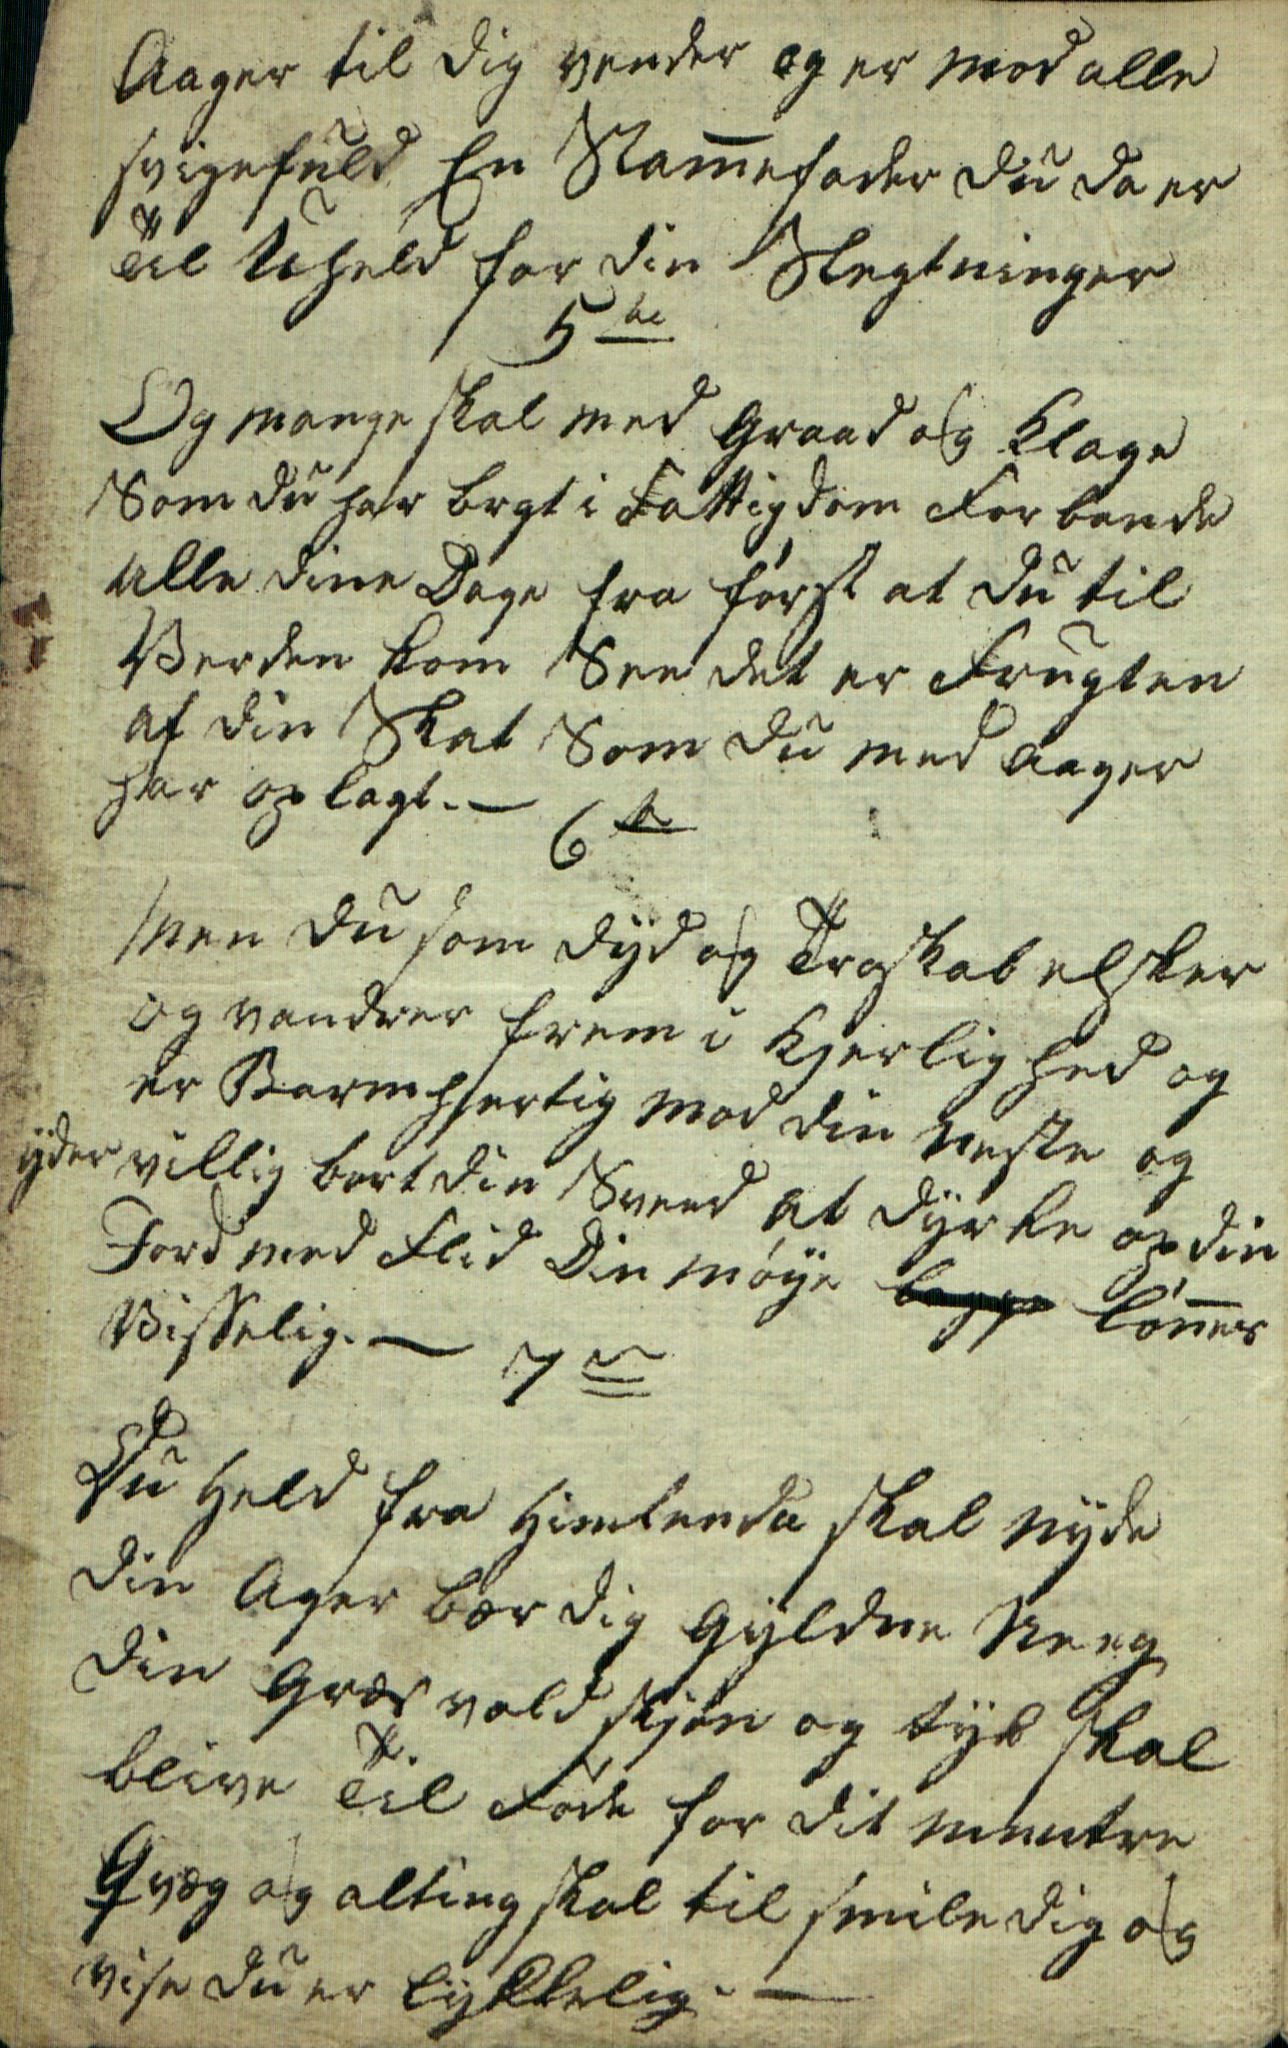 Aager til dig vender og er mod alle
svigefuld En Stam̄efader du da er
Til Uheld for din Slegtninger
5te
Og mange skal med Graad og Klage
Som du har bragt i Fattigdom Forbande
alle dine Dage fra først at du til
Verden kom See det er Frugten
af din Skat Som du med Aager
har oplagt. —
6te
Men du som dyd og Troskab elsker
og vandrer frem i Kjerlighed og
er Barmhjertig mod din Neste og
yder villig bort din Sveed at dyrke op din
Jord med Flid Din møye løn̄es
Visselig. —
7de
Du Held fra Himlen da skal nyde
din Ager bær dig Gyldne Neeg
din Græsvold skjøn og tyk skal
blive Til Føde for dit muntre
Qvæg og alting skal til smile dig og
vise du er lykkelig. —